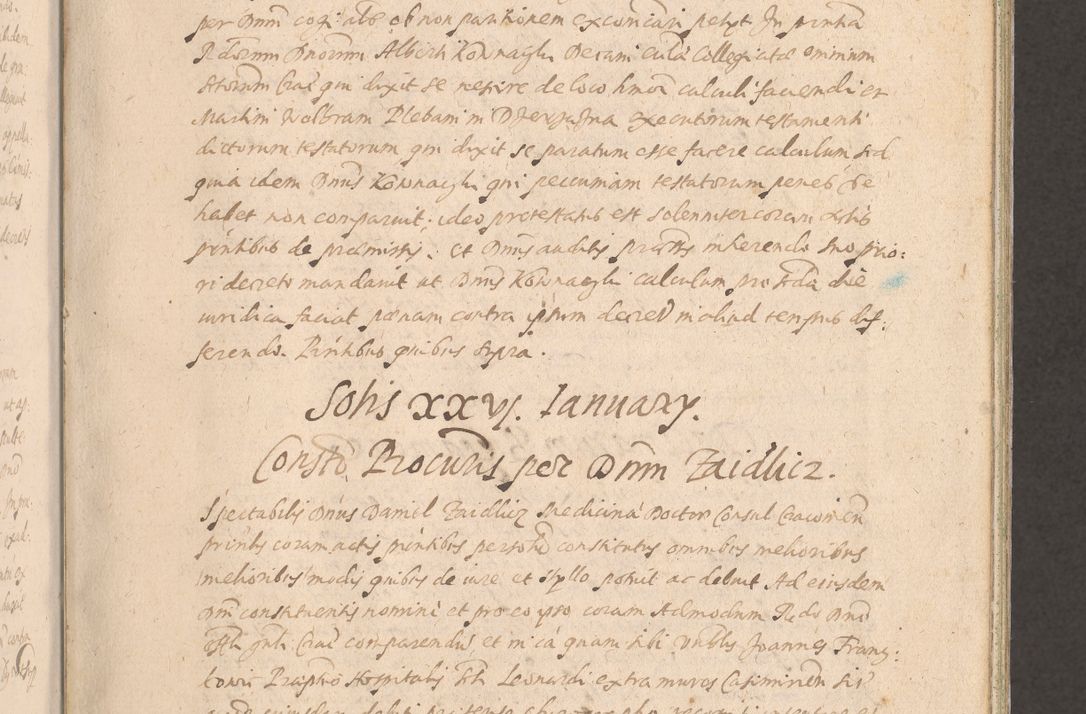 per Dnm cogi als ob non paritionem excommcari petyt In pnntia
Rdorum Dnorum Alberti Kownaczki Decani Colle Collegiatae omnium
Storum Crac qui dixit se nescire de loco hmoi calculi faciendi et
Martini Wolbram Plebani in executorum testamenti
dictorum testatorum qui dixit se paratum esse facere calculum sed
quia idem Dnus Kownaczki qui pecuniam testatorum penes se
habet non comparuit, ideo protestatus est solenniter coram Actis
pnntibus de praemissis. Et Dnus auditis praemissis inherendo suo prio:
ri decreto mandavit ut Dnus Kownaczki calculum pro Scda die
iuridica faciat poenam contra ipsum decreti in aliud tempus dif:
ferendo. Pnntibus quibus supra.
Solis XXVI. Ianuary.
Consto Procuris per Dnm Zaidlicz.
Spectabilis Dnus Daniel Zaidlicz Medicina Doctor Consul Cracovien
prinlis coram actis pnntibus personlr constitutus omnibus melioribus
melioribus modis quibus de iure et stylo potuit ac debuit Ad eiusdem
Dni constituentis nomine et pro eo ipso coram Admodum Rdo Dno
Offli gnli Crac comparendis, et in ea quam sibi Nblis Joannes Frany:
kowic Praeptro Hospitalis Sti Leonardi extra muros Casimirien